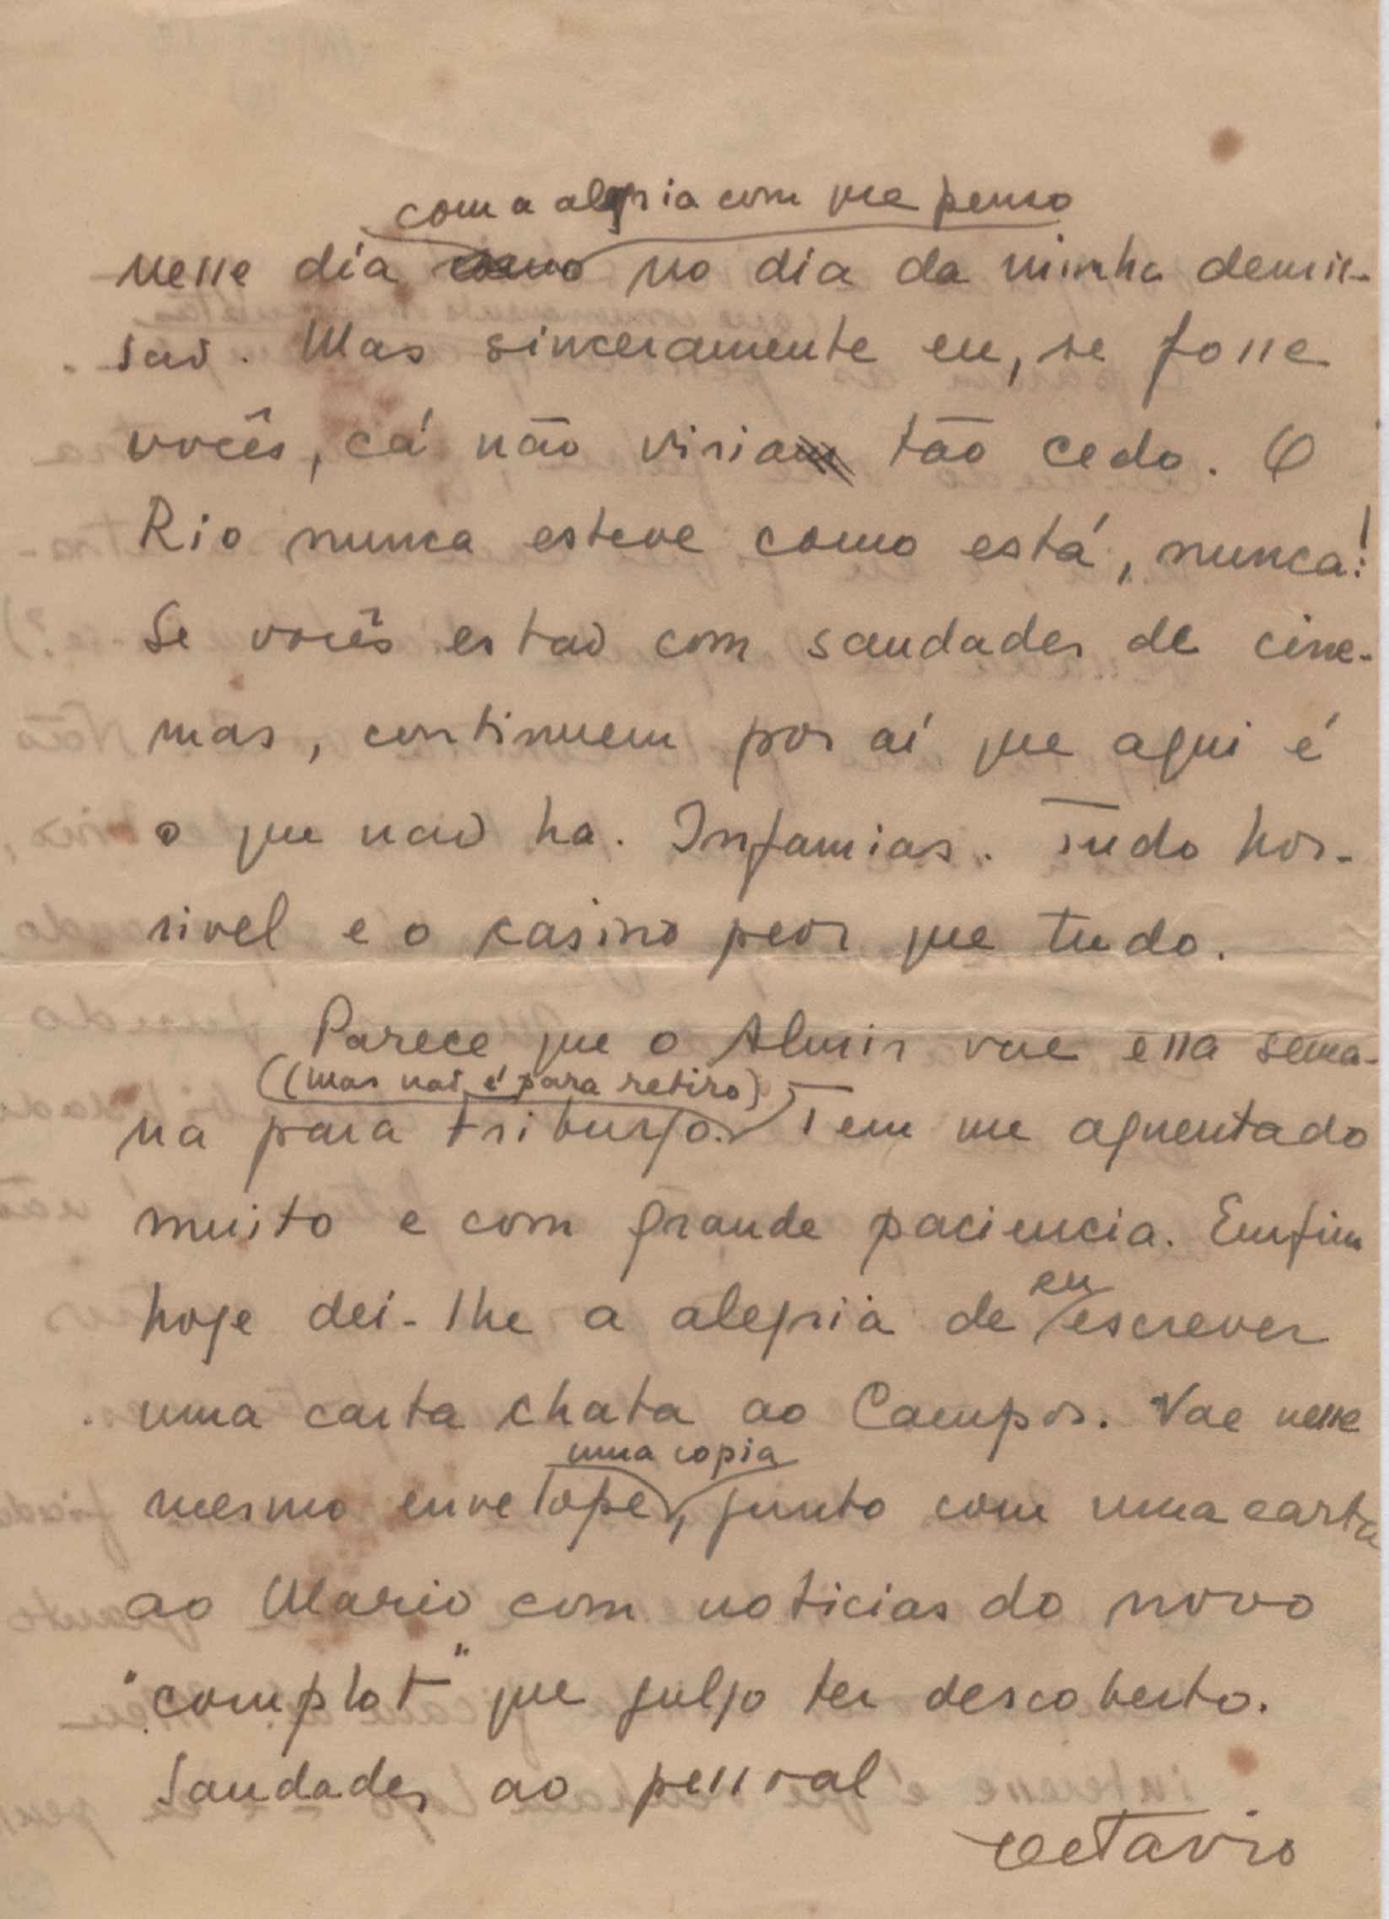 com a alegria com que penso
nesse dia como no dia da minha demis-
são. Mas sinceramente eu, se fosse
vocês, cá não viria tão cedo. O
Rio nunca esteve como está, nunca!
Se vocês estão com saudades de cine-
mas, continuem por aí que aqui é
o que não ha. Infamias. Tudo hor-
rivel e o casino peor que tudo.
Parece que o Almir vae essa sema-
(mas não é para retiro)
na para Friburgo. Tem me aguentado
muito e com grande paciencia. Emfim
hoje dei-lhe a alegria de eu escrever
uma carta chata ao Campos. Vae nesse
uma copia
mesmo envelope, junto com uma carta
ao Mario com noticias do novo
"complot" que julgo ter descoberto.
Saudades ao pessoal
Octavio